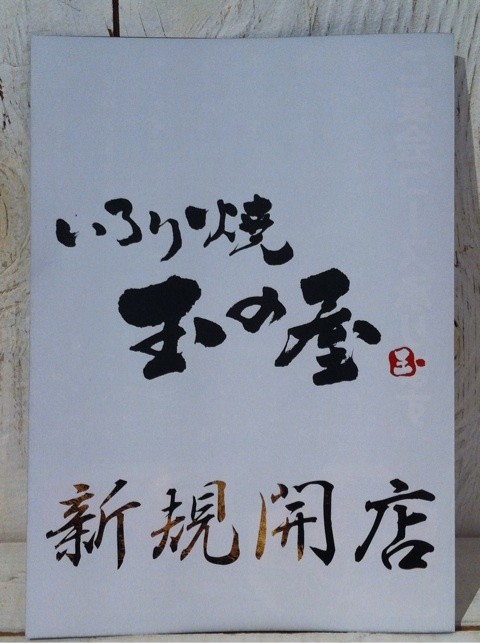 いろり焼
玉の屋
玉
新規開店